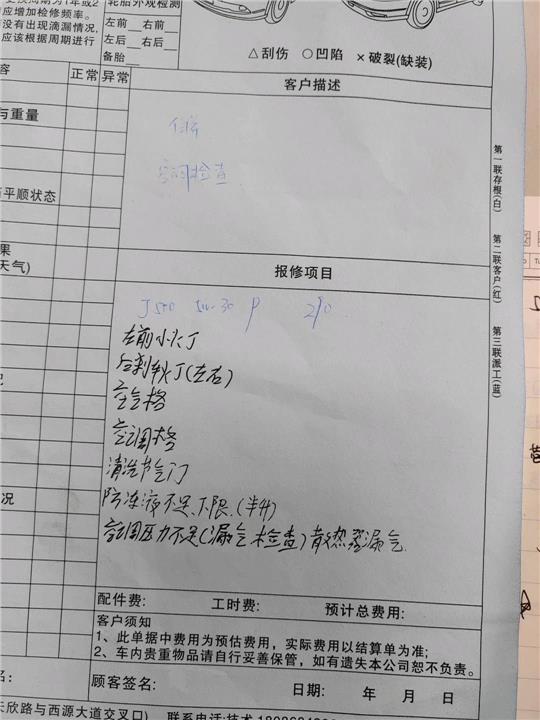 应增加检修频率。
没有出现滴漏情况,
应该根据周期进行
轮胎外观检测
左前 右前
左后 右后
备胎
△刮伤 ○凹陷 ×破裂(缺装)
容 正常 异常
与重量
平顺状态
果
天气)
况
客户描述
保养
空调检查
报修项目
J500 5W-30 P 290
左前小灯
后刹车灯(左右)
空气格
空调格
清洗节气门
防冻液不足、下限.(半升)
空调压力不足(漏气检查)散热器漏气
配件费: 工时费: 预计总费用:
客户须知
1、此单据中费用为预估费用,实际费用以结算单为准;
2、车内贵重物品请自行妥善保管,如有遗失本公司恕不负责。
名: 顾客签名: 日期: 年 月 日
长欣路与西源大道交叉口) 联系电话:技术
第一联存根(白)
第二联客户(红)
第三联派工(蓝)